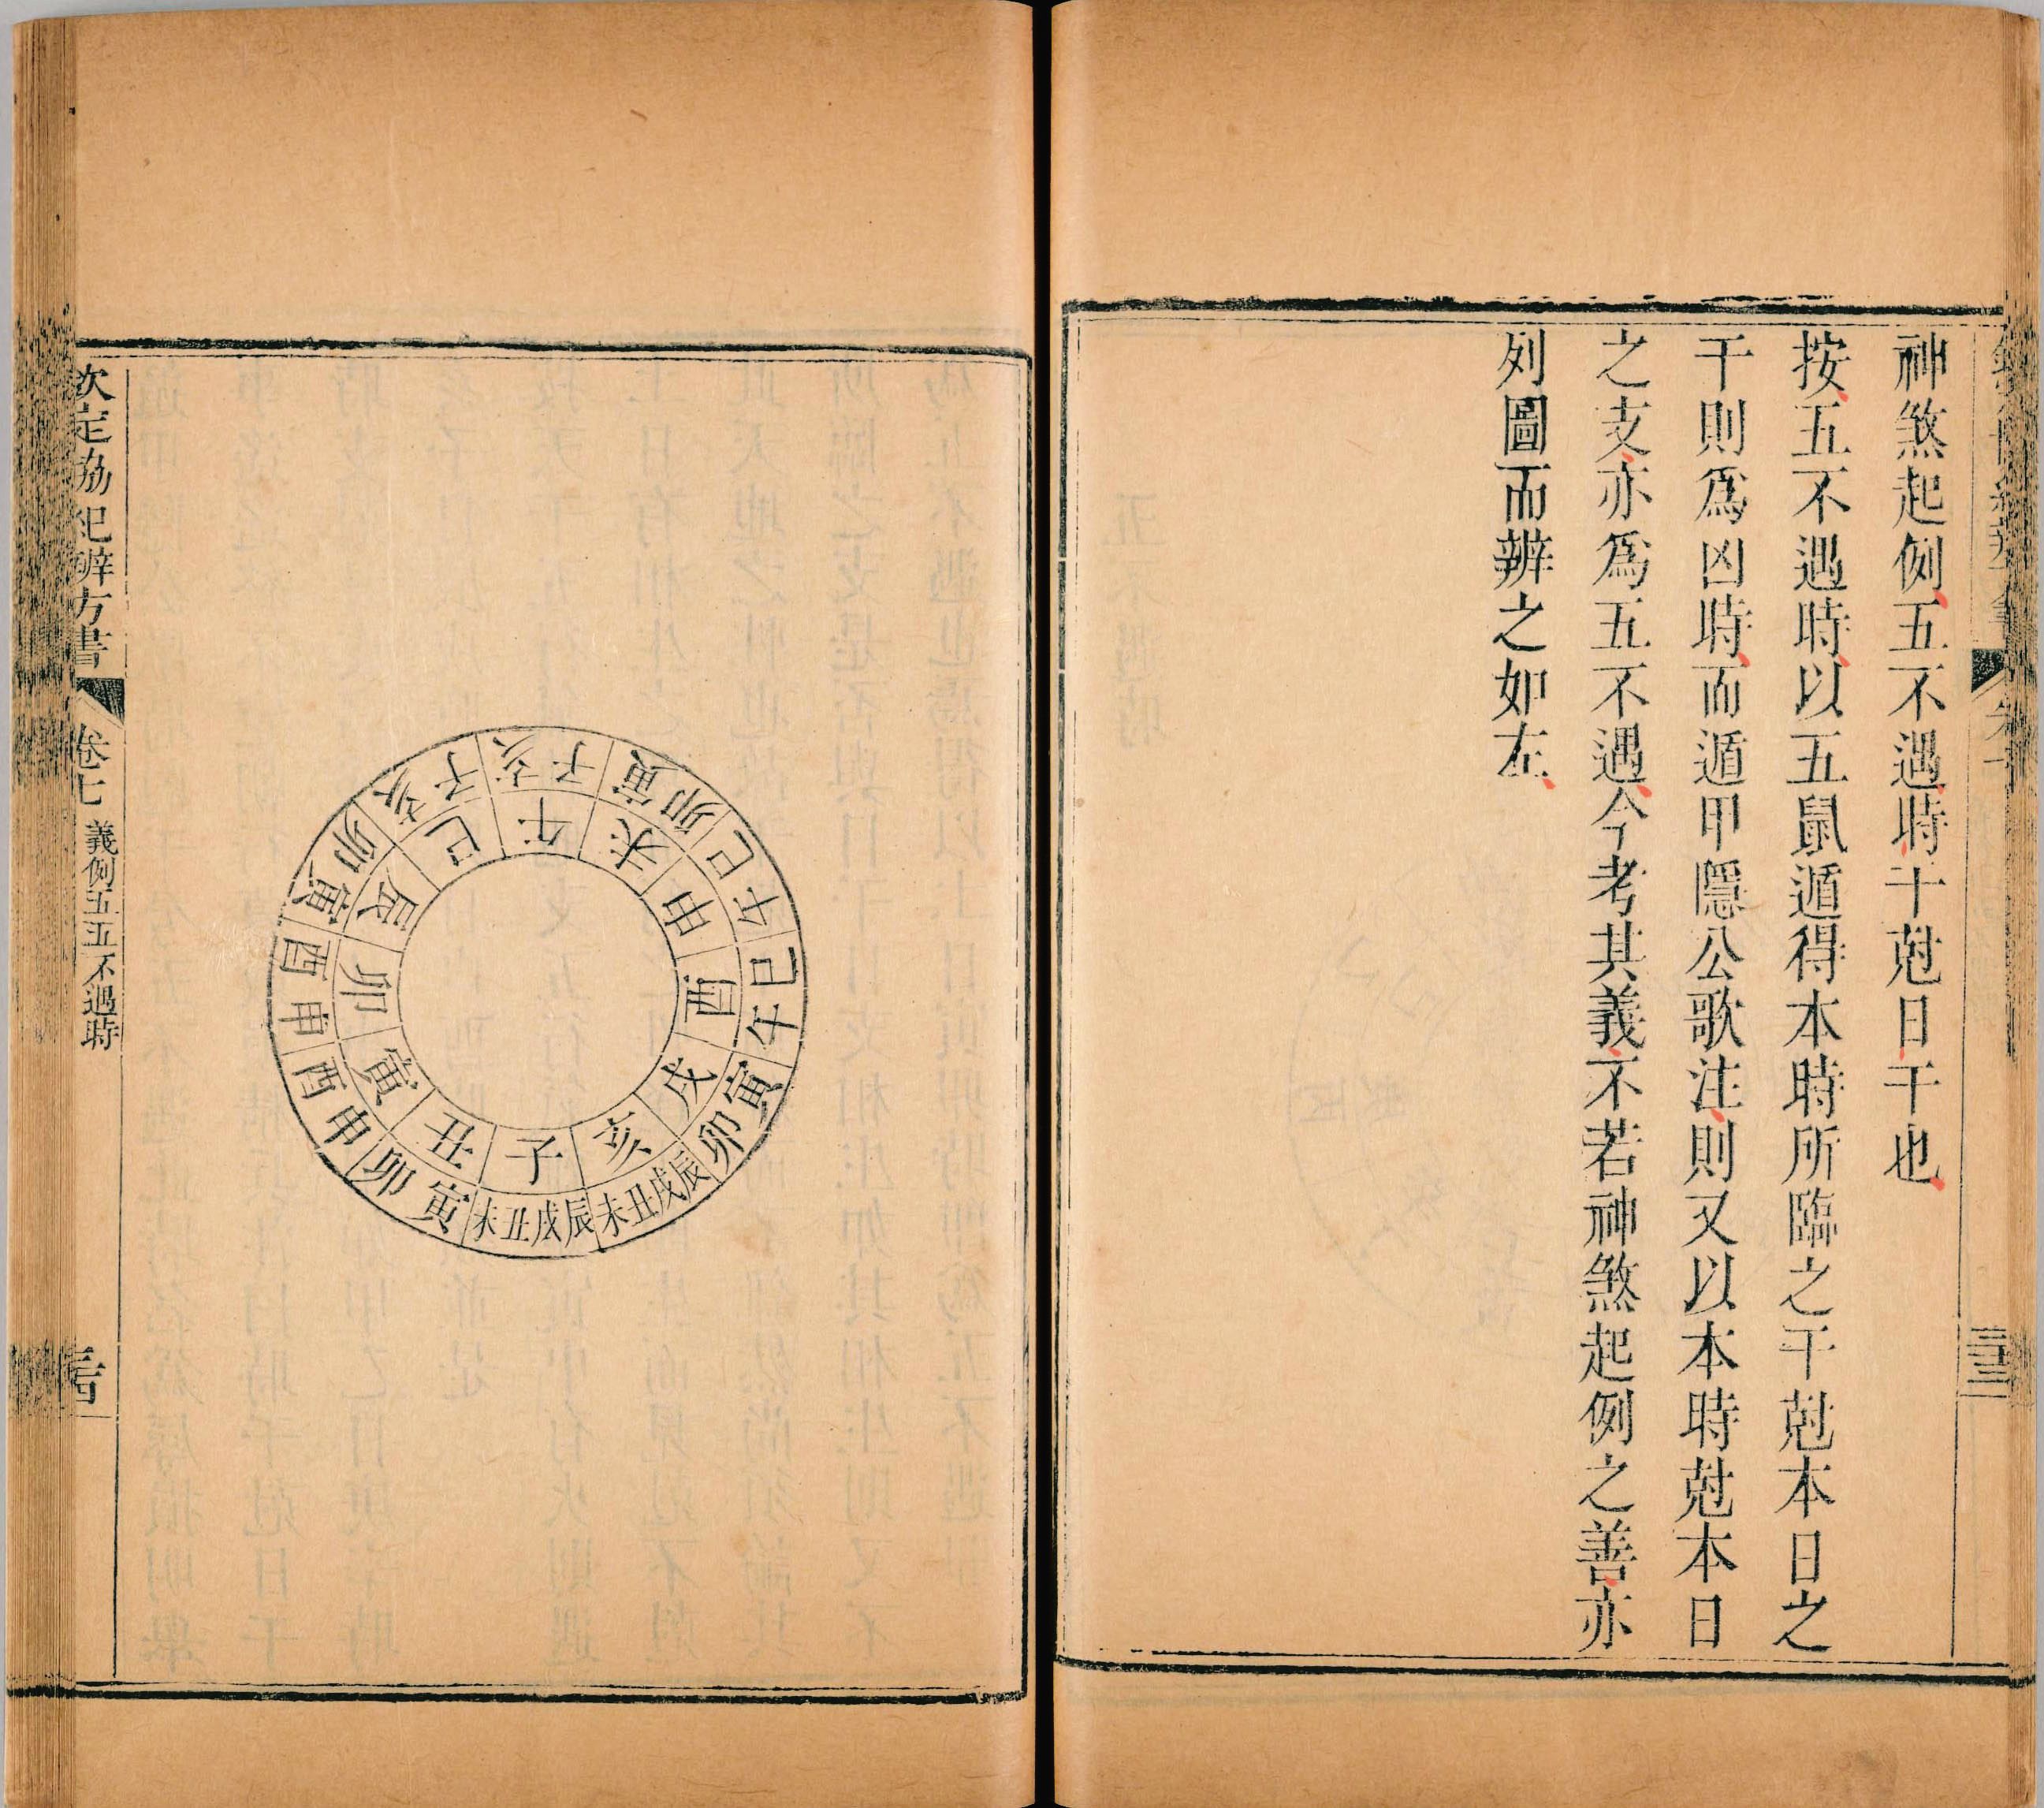 神煞起例五不遇時干尅日干也
按五不遇時以五鼠遁得本時所臨之干尅本日之
干則爲凶時而遁甲隱公歌注則又以本時尅本日
之支亦爲五不遇今考其義不若神煞起例之善亦
列圖而辨之如左
子
丑
寅
卯
辰
巳
午
未
申
酉
戌
亥
辰戌丑未
寅卯
申酉
申酉
寅卯
亥子
亥子
寅卯
巳午
巳午
寅卯
辰戌丑未
欽定協紀辨方書
卷七 義例五五不遇時